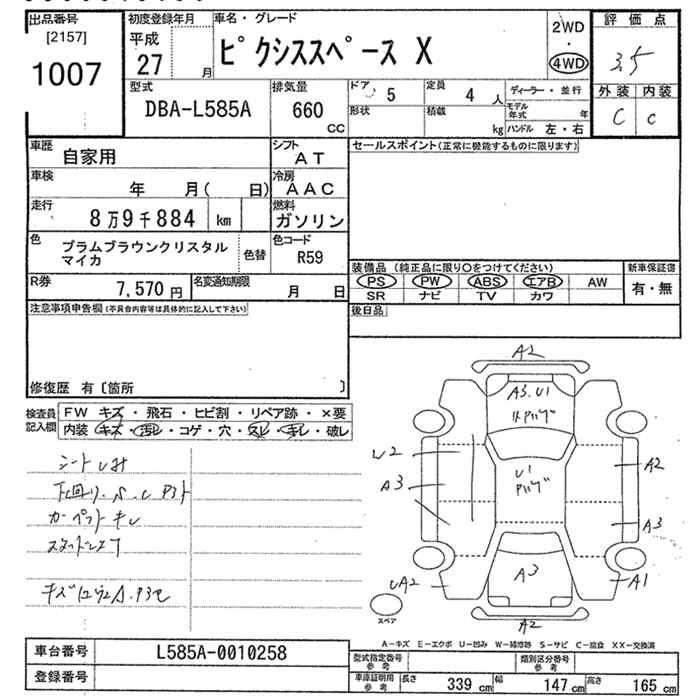 出品番号
[2157]
1007
初度登録年月
平成
27
月
車名・グレード
ピクシススペース X
2WD
・
4WD
評 価 点
3.5
外装 内装
C C
型式
DBA-L585A
排気量
660
CC
ドア 5
定員 4 人
形状
積載 kg
ディーラー・並行
モデル年式 年
ハンドル 左・右
車歴 自家用
シフト AT
車検 年 月( 日)
冷房 AAC
走行 8万9千884 km
燃料 ガソリン
色 プラムブラウンクリスタル
マイカ
色替
色コード R59
R券 7,570 円
名変通知期限 月 日
セールスポイント(正常に機能するものに限ります)
装備品 (純正品に限り○をつけてください)
PS PW ABS エアB AW
SR ナビ TV カワ
新車保証書
有・無
後日品
注意事項申告欄(不具合内容等は具体的に記入して下さい)
修復歴 有〔箇所 〕
検査員
記入欄
FW キズ・飛石・ヒビ割・リペア跡・×要
内装 キズ・汚レ・コゲ・穴・スレ・キレ・破レ
下回り.S.C
カーペットキレ
スタッドレス
A2
A3.U1
U2
A3
U1
A2
A3
A3
A1
UA2
A2
スペア
A-キズ E-エクボ U-凹み W-補修跡 S-サビ C-腐食 XX-交換済
車台番号 L585A-0010258
登録番号
型式指定番号
参考
類別区分番号
参考
車庫証明用
参考
長さ 339 cm
幅 147 cm
高さ 165 cm